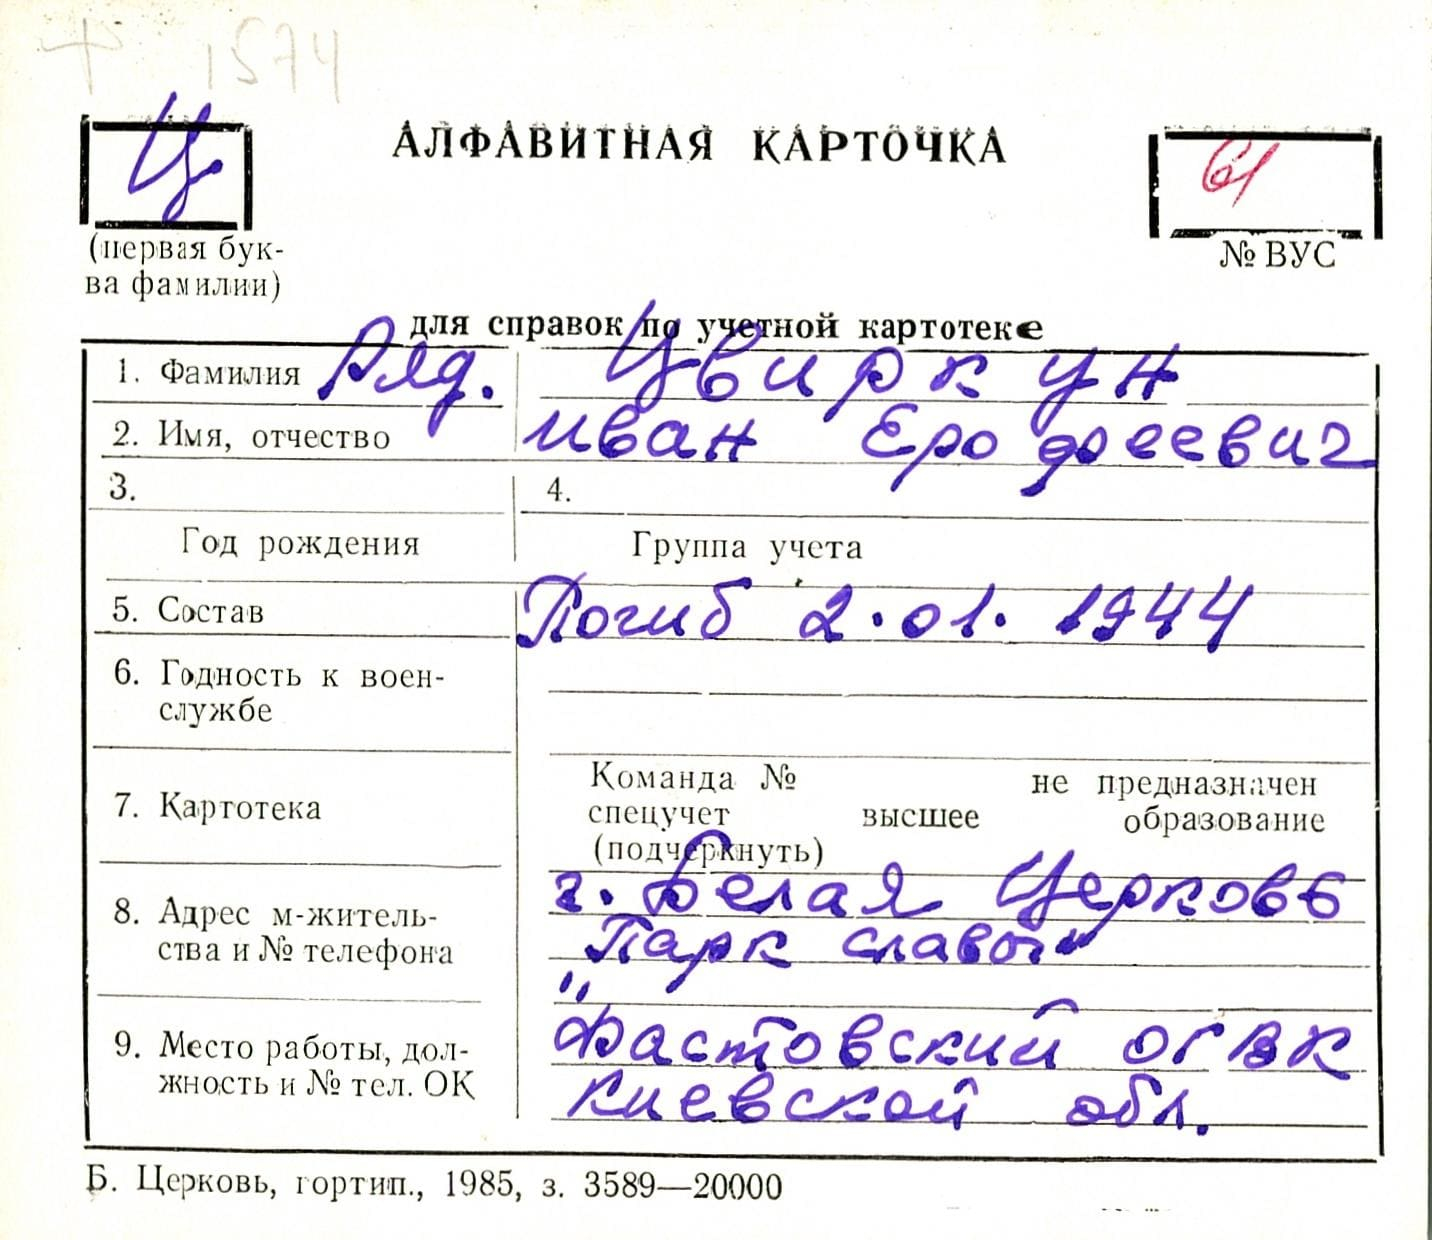 1574
Ц
АЛФАВИТНАЯ КАРТОЧКА
61
(первая бук-
ва фамилии)
№ ВУС
для справок по учетной картотеке
1. Фамилия Ряд. Цвиркун
2. Имя, отчество Иван Ерофеевич
3. 4.
Год рождения Группа учета
5. Состав Погиб 2.01.1944
6. Годность к воен-
службе
Команда № не предназначен
7. Картотека спецучет высшее образование
(подчеркнуть)
г. Белая Церковь
8. Адрес м-житель-
ства и № телефона "Парк славы"
Фастовский ОГВК
9. Место работы, дол-
жность и № тел. ОК Киевской обл.
Б. Церковь, гортип., 1985, з. 3589—20000